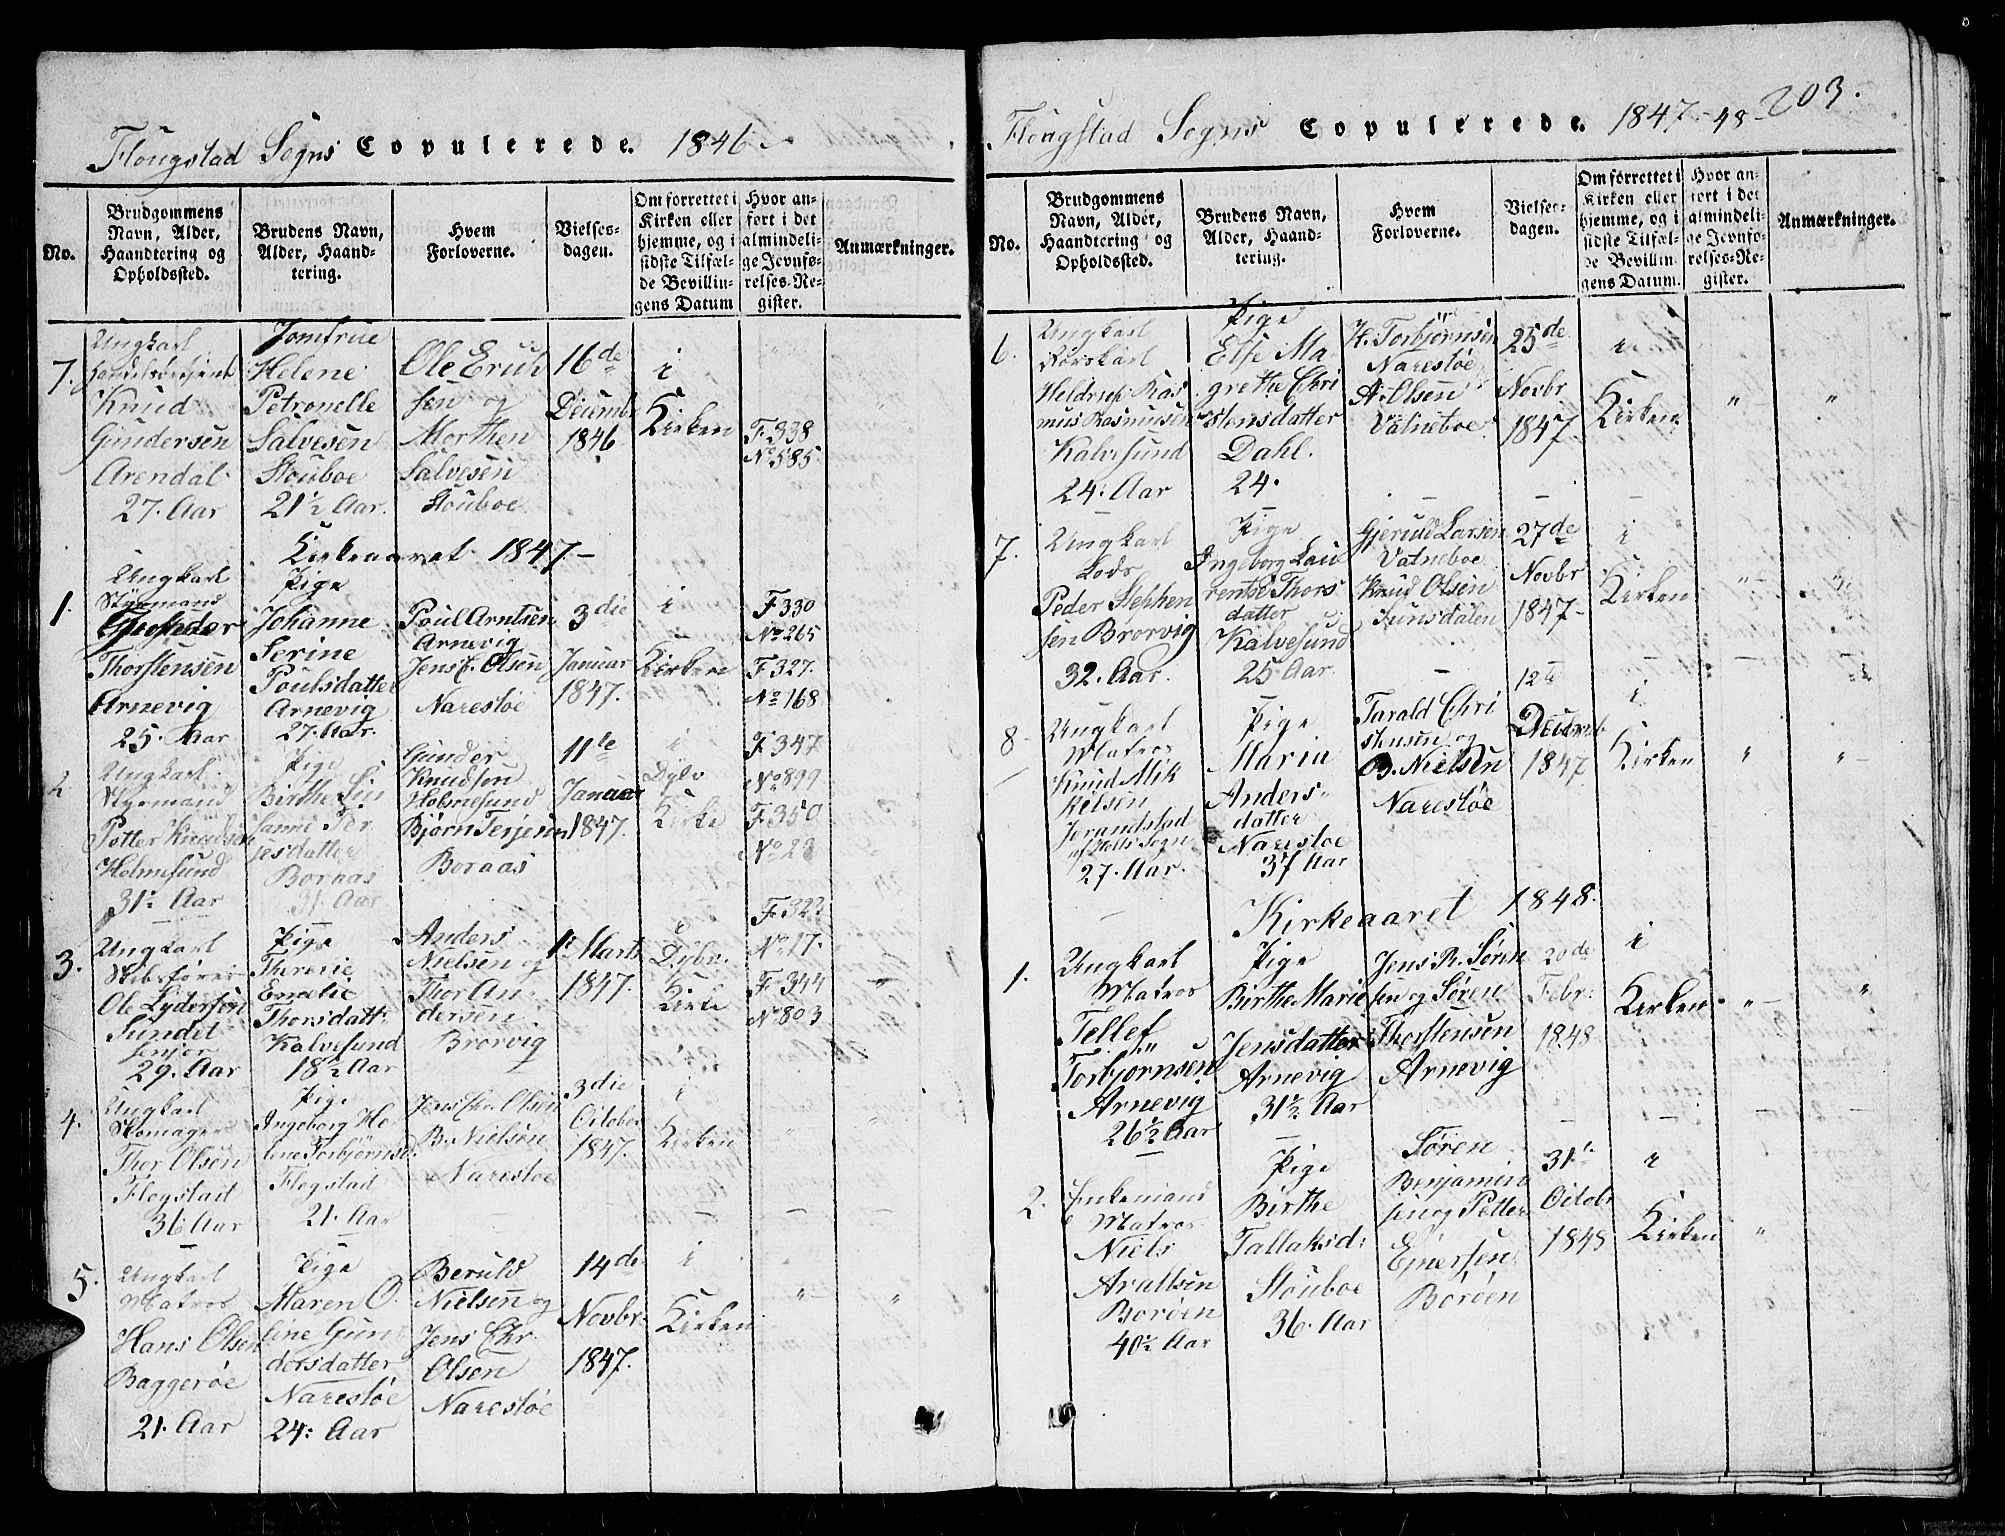 Flougstad Sogns Copulerede. 1846
No.
Brudgommens Navn, Alder, Haandtering og Opholdssted.
Brudens Navn, Alder, Haandtering.
Hvem Forloverne.
Vielsesdagen.
Om forrettet i Kirken eller hjemme, og i sidste Tilfælde Bevillingens Datum
Hvor anført i det almindelige Jevnførelses-Register.
Anmærkninger.
7.
Ungkarl
Knud
Gundersen
Arendal
27. Aar
Jomfrue
Helene
Petronelle
Salvesen
Stouboe
21½ Aar.
Ole Erich
sen og
Morthen
Salvesen
Stouboe
16de
Decemb
1846.
i
Kirken
F. 338
No 585.
Kirkeaaret 1847-
1.
Ungkarl
Styrmand
Thorstensen
Arnevig
25. Aar
Pige
Johanne
Serine
Poulsdatter
Arnevig
27. Aar.
Poul Arntsen
Arnevig
Jens C. Olsen
Narestöe
3die
Januar
1847.
i
Kirken
F 330
No 265
F 327.
No 168
2
Ungkarl
Styrmand
Petter Knudsen
Holmesund
31½ Aar
Pige
Birthe Su
sanne Ter
jesdatter
Boraas
31. Aar
Gunder
Knudsen
Holmesund
Bjørn Terjesen
Boraas
11te
Januar
1847.
i
Dybv
Kirke
F 347
No 899.
F. 350
No 23
3.
Ungkarl
Skibsfører
Ole Lydersen
Sundet
29. Aar
Pige
Theresie
Emelie
Thorsdatt:
Kalvesund
18½ Aar
Anders
Nielsen og
Thor An-
dersen
Brorvig
1. Marts
1847.
i
Dybv.
Kirke
F. 323
No 17.
F. 344
No 803
4.
Ungkarl
Skomager
Thor Olsen
Flogstad
36 Aar
Pige
Ingeborg He
lene Torbjørnsd.
Flogstad
21. Aar
Jens Chr. Olsen
B. Nielsen
Narestoe
3die
October
1847.
i
Kirken
5.
Ungkarl
Matros
Hans Olsen
Baggerøe
21. Aar
Pige
Maren O.
line Gun
dersdatter
Narestöe
24: Aar
Beruld
Nielsen og
Jens Chr.
Olsen
Narestöe
14de
Novbr.
1847.
i
Kirken
"
"
Flougstad Sogns Copulerede. 1847-48-
203.
No.
Brudgommens Navn, Alder, Haandtering og Opholdssted.
Brudens Navn, Alder, Haandtering.
Hvem Forloverne.
Vielsesdagen.
Om forrettet i Kirken eller hjemme, og i sidste Tilfælde Bevillingens Datum.
Hvor anført i det almindelige Jevnførelses-Register.
Anmærkninger.
6.
Ungkarl
Heldrup Ras
mus Rasmussen
Kalvesund
24. Aar
Pige
Else Ma
grethe Chri
stensdatter
Dahl.
24.
K. Torbjørnsen
Narestøe
A. Olsen
Vatneboe
25de
Novbr
1847.
i
Kirken
"
"
7.
Ungkarl
Lods
Peder Stephen
sen Brorvig
32. Aar.
Pige
Ingeborg Lau
rentse Thors
datter
Kalvesund
25. Aar.
Gjeruld Larsen
Vatneboe
Knud Olsen
27de
Novbr
1847-
i
Kirken
8-
Ungkarl
Matros
Knud Mik
kelsen
27. Aar.
Pige
Maria
Anders-
datter
Narestoe
37 Aar
Tarald Chri
stensen og
B. Nielsen
Narestöe
12te
Decemb
1847
i
Kirken
"
"
Kirkeaaret 1848.
1.
Ungkarl
Matros
Tellef
Torbjørnsen
Arnevig
26½ Aar
Pige
Birthe Marie
Jensdatter
Arnevig
31½ Aar
Jens R. Søren
sen og Søren
Thorstensen
Arnevig
20de
Febr:
1848
i
Kirken.
"
"
2.
Enkemand
Matros
Niels
Araltsen
Boröen
40½ Aar
Pige
Birthe
Tallaksd:
Stouboe
36. Aar
Søren
Benjamin
sen og Petter
Ejnersen
Boröen
31te
Octobr
1848
i
Kirken
"